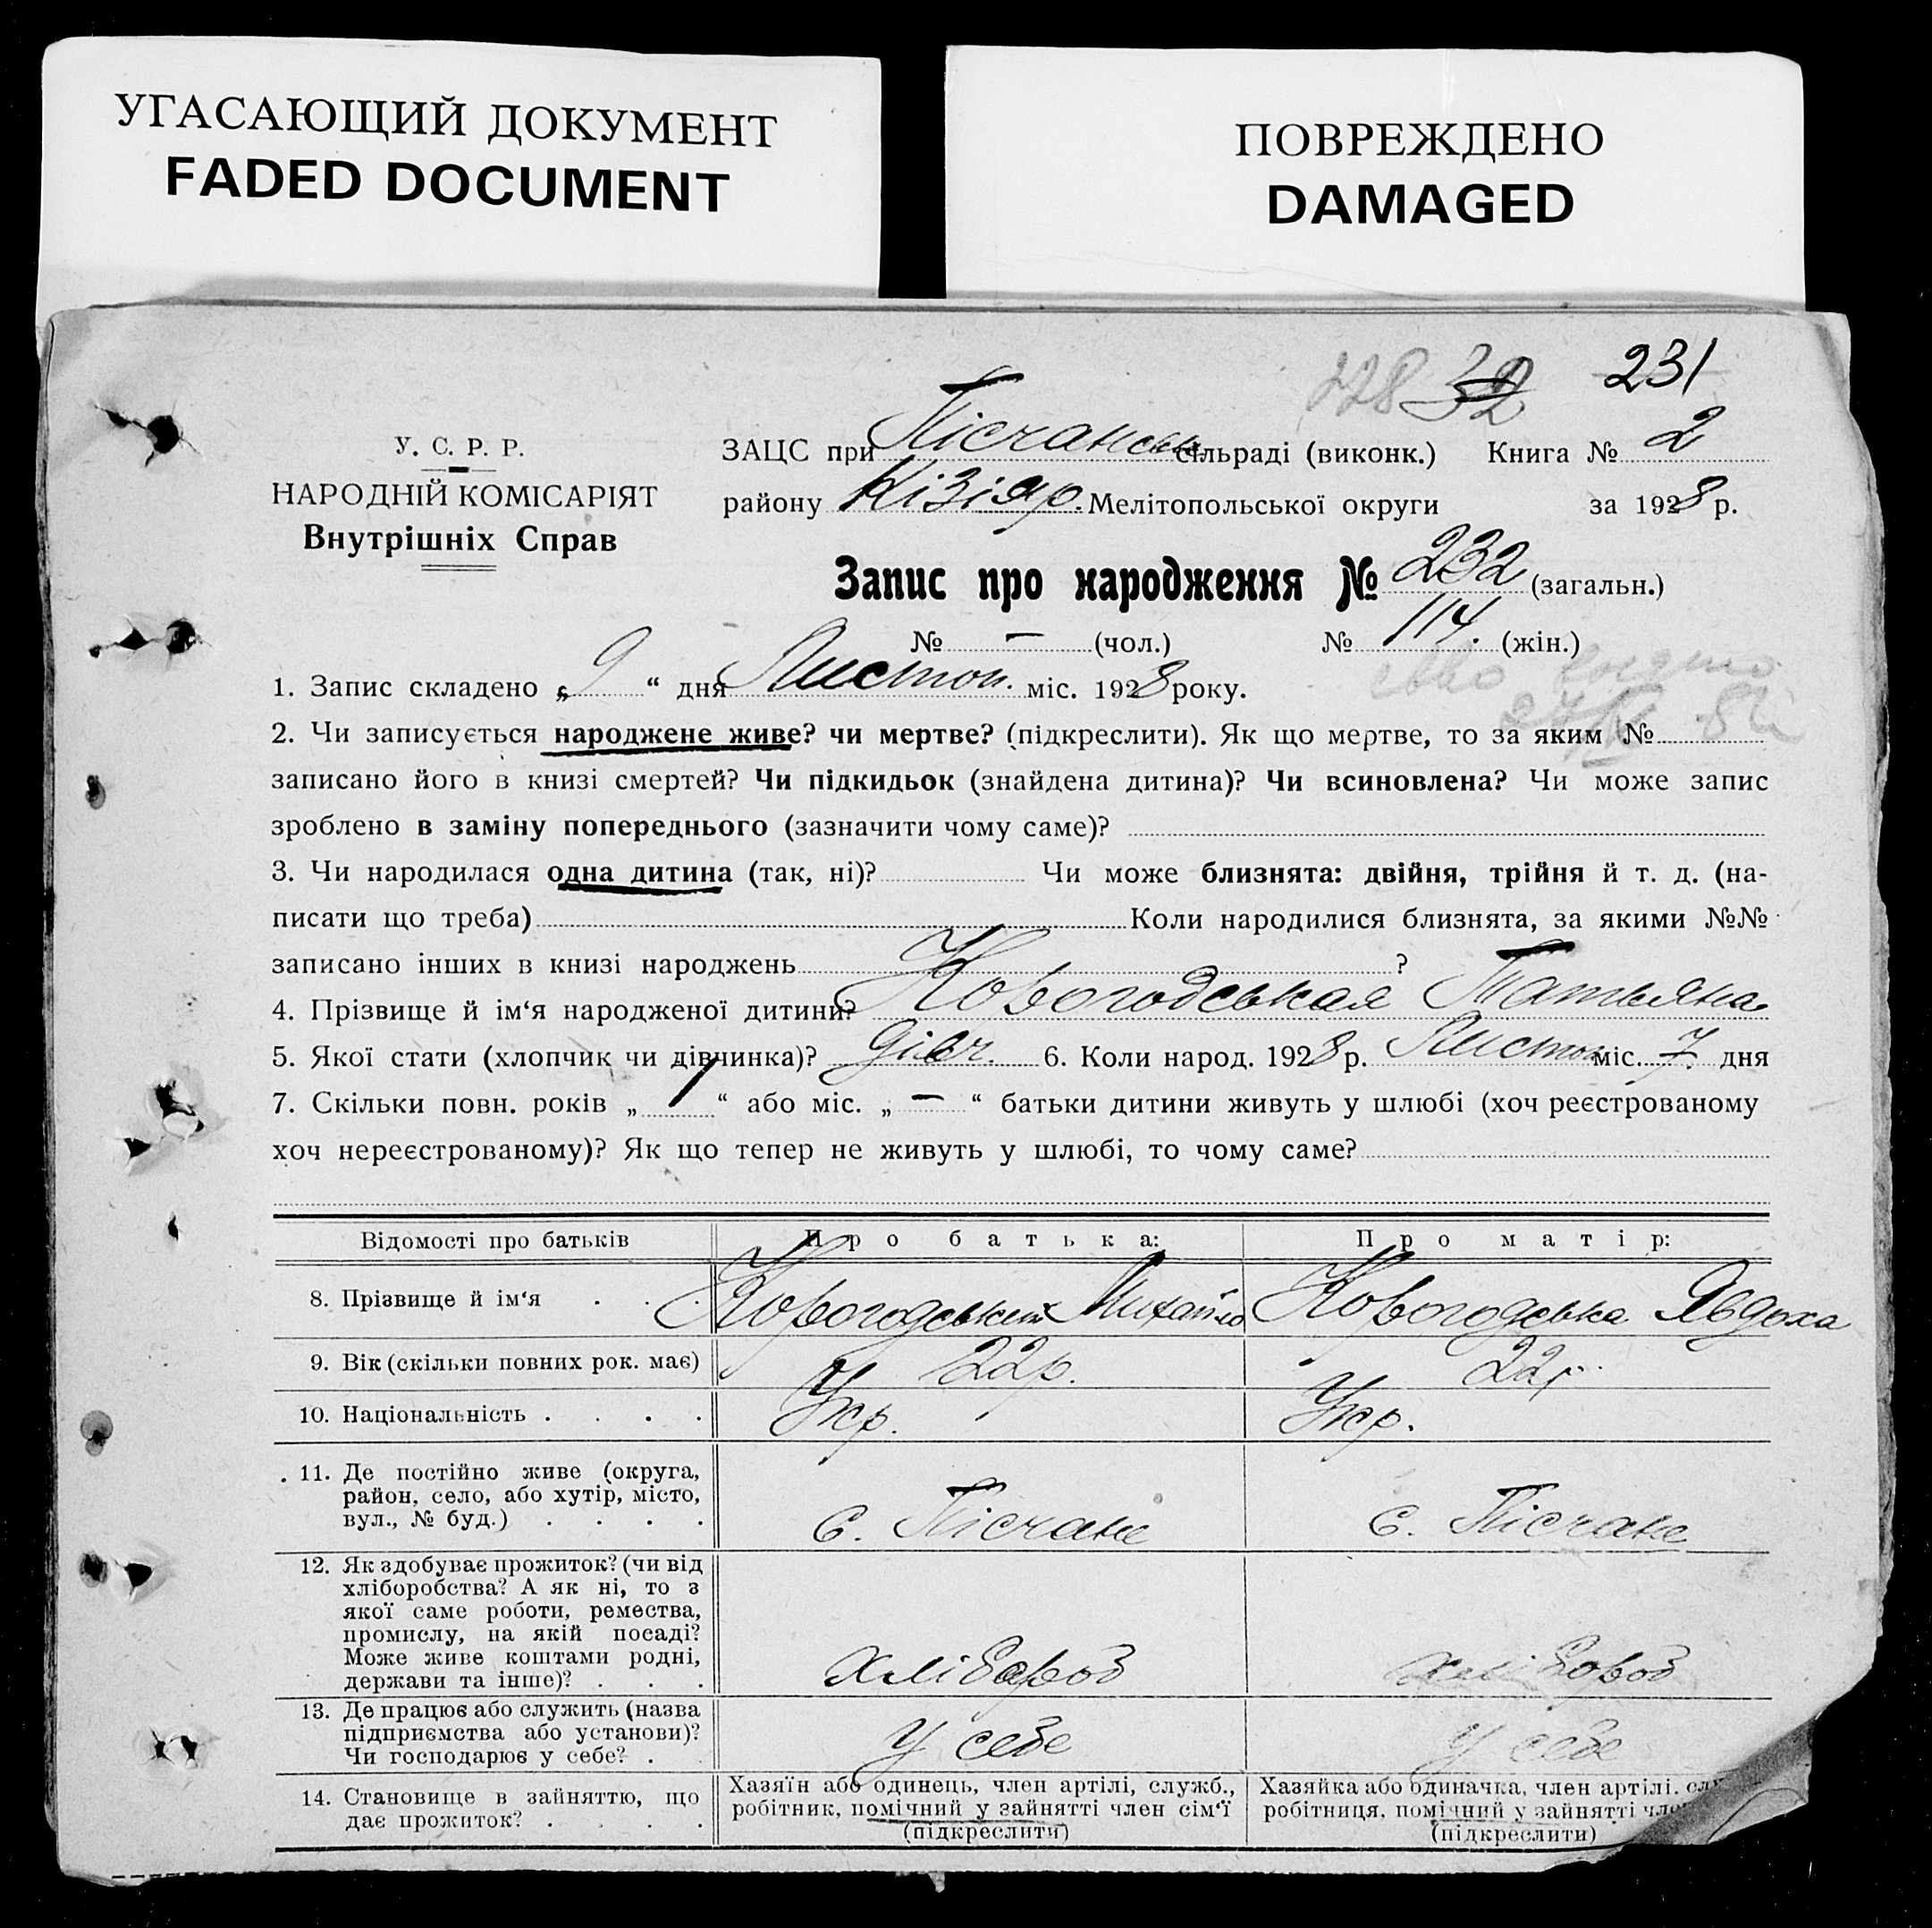 УГАСАЮЩИЙ ДОКУМЕНТ
FADED DOCUMENT
ПОВРЕЖДЕНО
DAMAGED
228 32 231
У. С. Р. Р.
НАРОДНІЙ КОМІСАРІЯТ
Внутрішніх Справ
ЗАЦС при Пісчанськ сільраді (виконк.) Книга № 2
району Кізіяр. Мелітопольської округи за 1928 р.
Запис про народження № 232 (загальн.)
№ — (чол.) № 114. (жін.)
1. Запис складено „ 9 “ дня Листоп. міс. 1928 року.
2. Чи записується народжене живе? чи мертве? (підкреслити). Як що мертве, то за яким №
записано його в книзі смертей? Чи підкидьок (знайдена дитина)? Чи всиновлена? Чи може запис
зроблено в заміну попереднього (зазначити чому саме)?
3. Чи народилася одна дитина (так, ні)? Чи може близнята: двійня, трійня й т. д. (на-
писати що треба) Коли народилися близнята, за якими №№
записано інших в книзі народжень ?
4. Прізвище й ім‘я народженої дитини? Новогодськая Татьяна
5. Якої стати (хлопчик чи дівчинка)? дівч. 6. Коли народ. 1928 р. Листоп міс. 7. дня
7. Скільки повн. років „ 1 “ або міс. „ — “ батьки дитини живуть у шлюбі (хоч реєстрованому
хоч нереєстрованому)? Як що тепер не живуть у шлюбі, то чому саме?
Відомості про батьків Про батька: Про матір:
8. Прізвище й ім‘я . . . Новогодський Михайло Новогодська Явдоха
9. Вік (скільки повних рок. має) 22р. 22р.
10. Національність . . . . Укр. Укр.
11. Де постійно живе (округа,
район, село, або хутір, місто,
вул., № буд.) . . . . с. Пісчане с. Пісчане
12. Як здобуває прожиток? (чи від
хліборобства? А як ні, то з
якої саме роботи, ремества,
промислу, на якій посаді?
Може живе коштами родні,
держави та інше)? . . . хлібороб хлібороб
13. Де працює або служить (назва
підприємства або установи)?
Чи господарює у себе? . . у себе у себе
14. Становище в зайняттю, що
дає прожиток? . . . .
Хазяїн або одинець, член артілі, служб.,
робітник, помічний у зайнятті член сім‘ї
(підкреслити)
Хазяйка або одиначка, член артілі. слу
робітниця, помічний у зайнятті чле
(підкреслити)